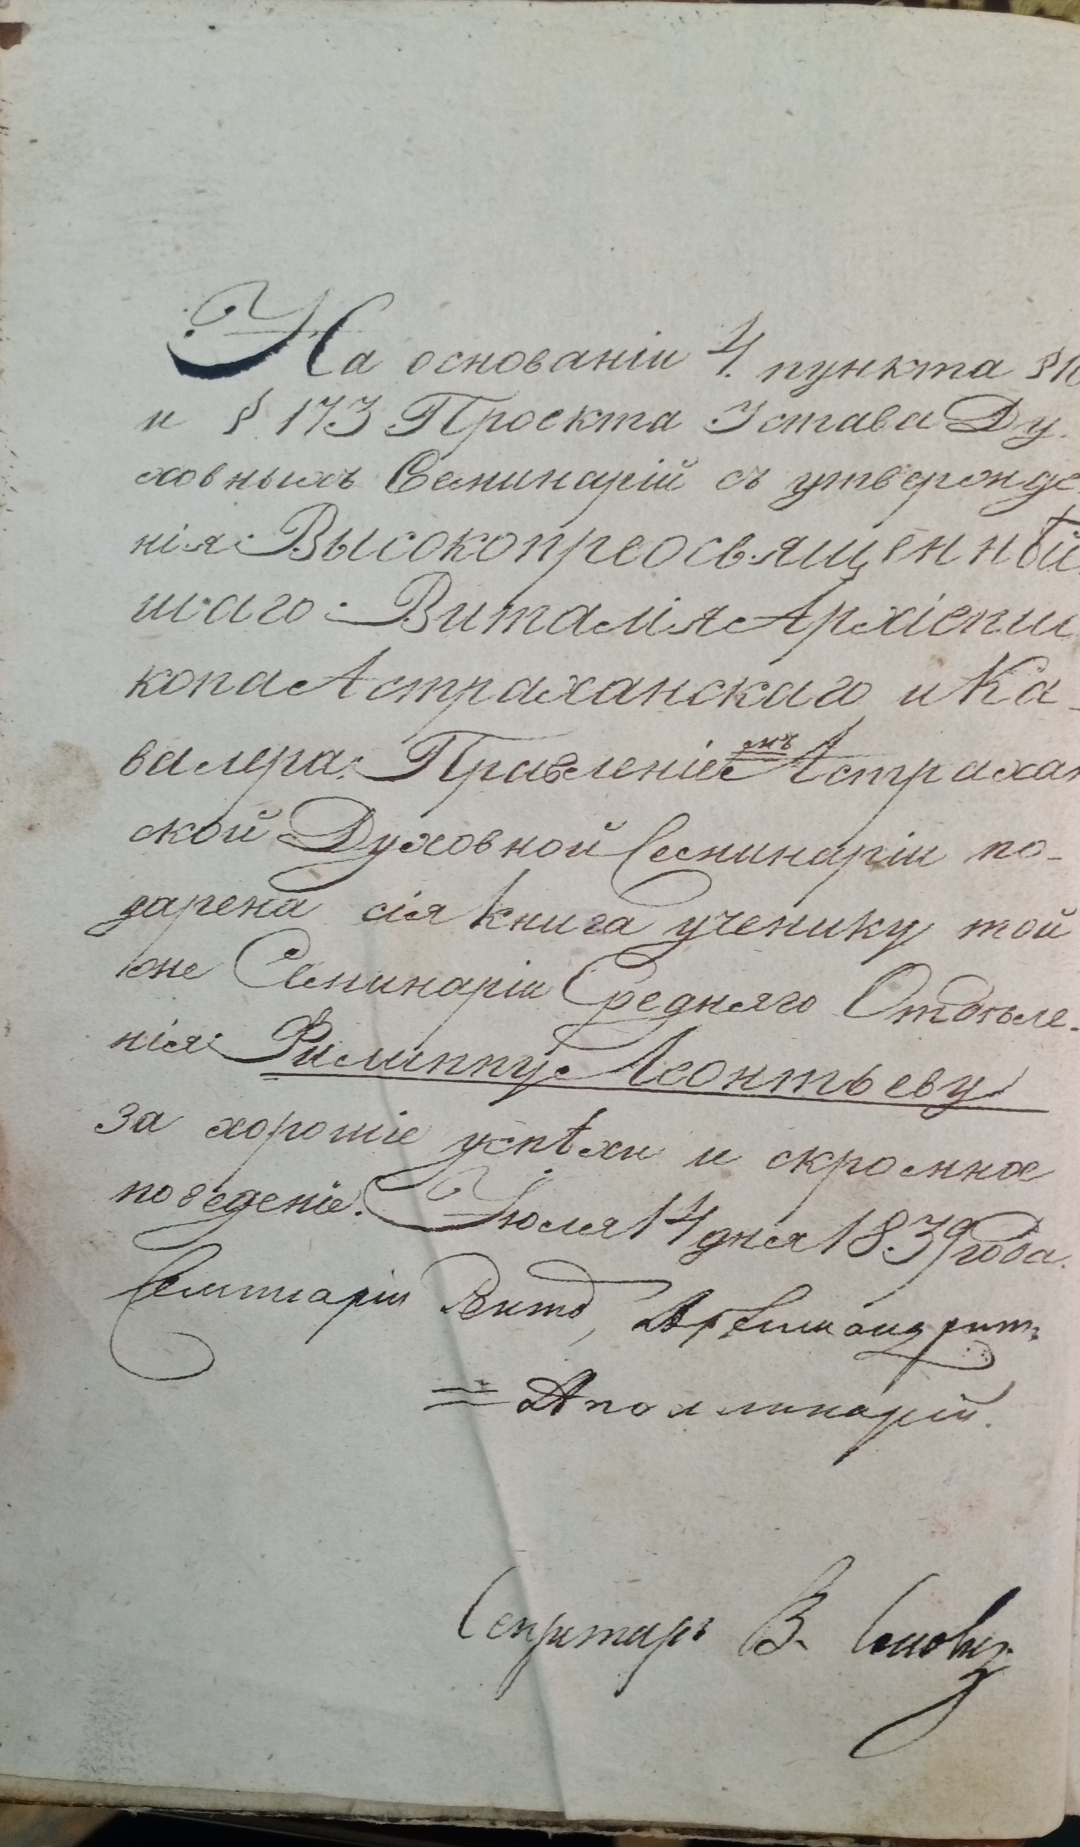 На основаніи 4. пункта §
и §. 173 Проекта Устава Ду-
ховныхъ Семинарій съ утвержде
нія Высокопреосвященнѣй
шаго Виталія Архіепис
копа Астраханскаго и Ка-
валера. Правленіемъ Астрахан
ской Духовной Семинаріи по-
дарена сія книга ученику той
же Семинаріи Средняго Отдѣле-
нія Филиппу Леонтьеву
за хорошіе успѣхи и скромное
поведеніе. Іюля 14 дня 1839 года.
Семинаріи Архимандритъ
= Аполлинарій.
Секретарь В.